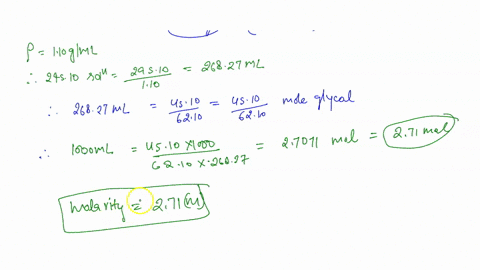 ρ = 1.10g/mL
∴ 295.10 solⁿ = 295.10 / 1.10 = 268.27 mL
∴ 268.27 mL = 45.10 / 62.10 = 45.10 / 62.10 mole glycol
∴ 1000mL = 45.10 × 1000 / 62.10 × 268.27 = 2.7071 mol = 2.71 mol
molarity = 2.71 (M)